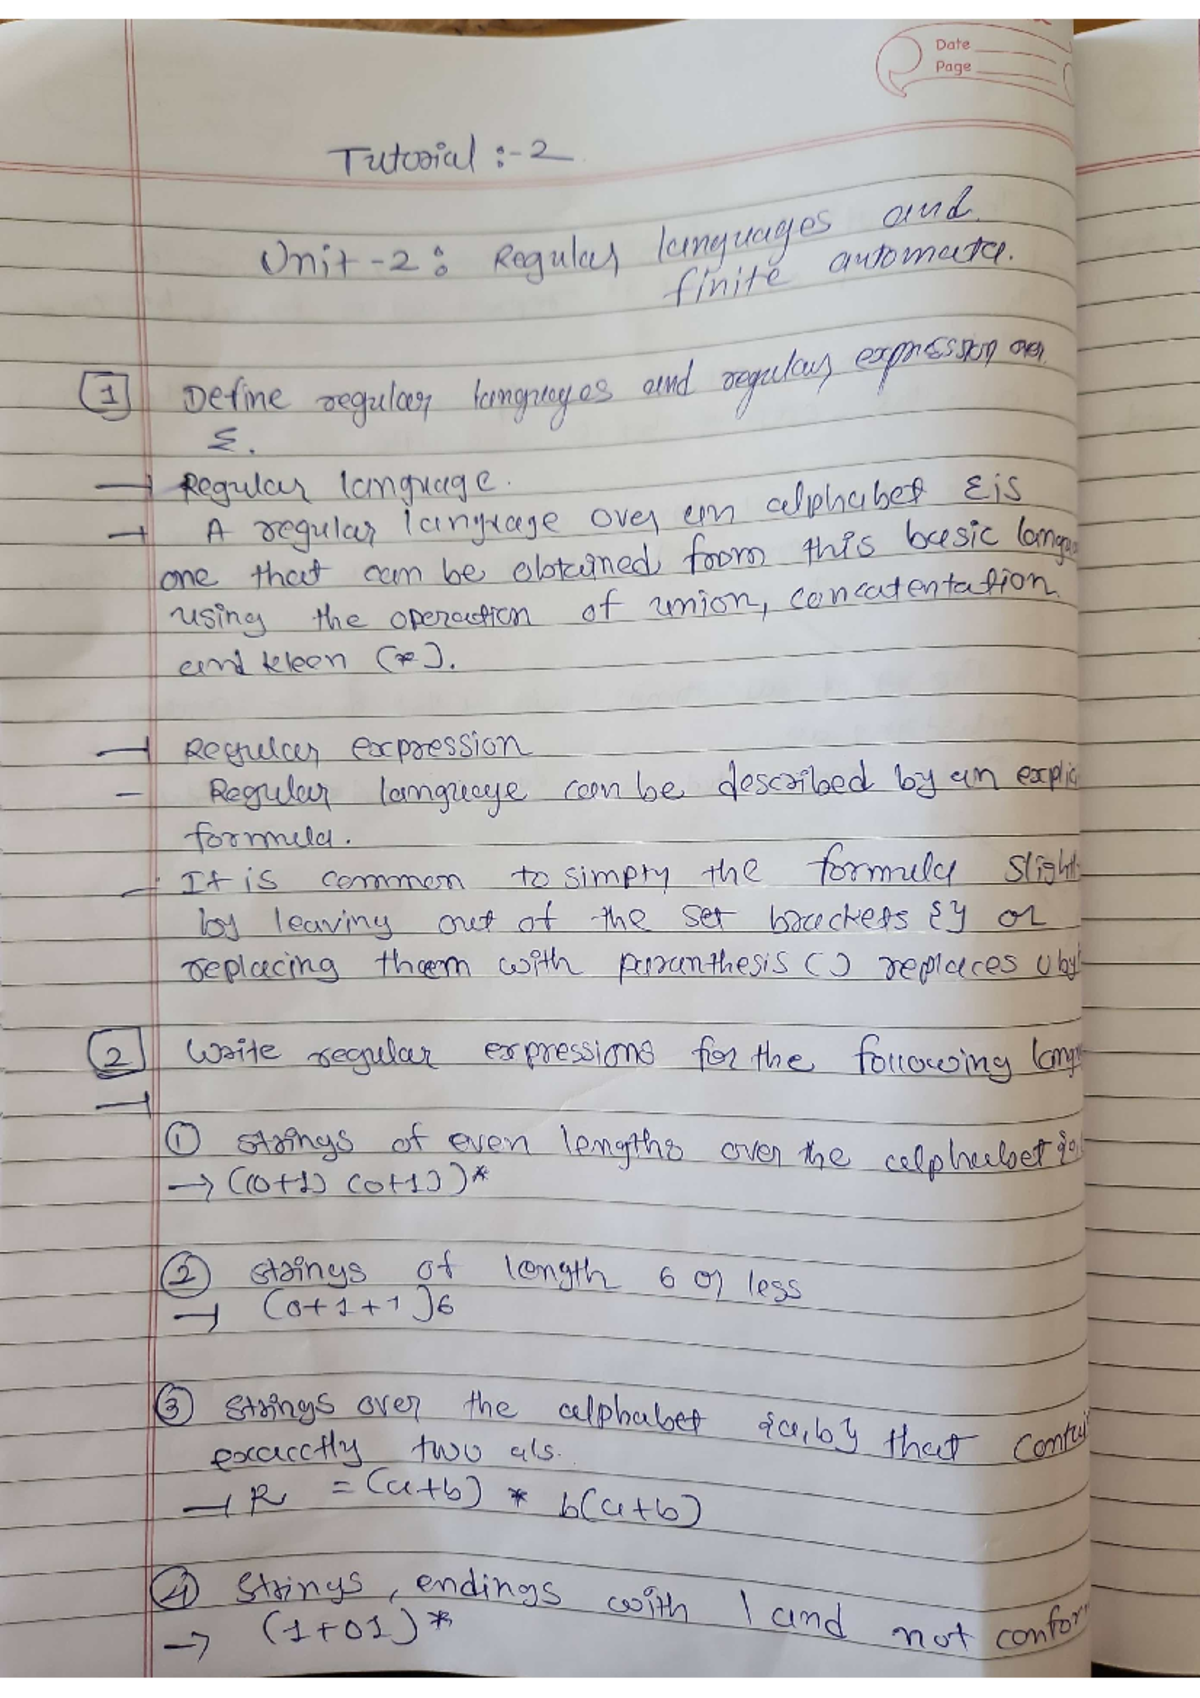 Date
Page
Tutorial :- 2
Unit - 2 : Regular languages and
finite automata.
1 Define regular languages and regular expression over
Σ.
→ Regular language.
→ A regular language over an alphabet Σ is
one that can be obtained from this basic
using the operation of union, concatentation
and kleen (*).
→ Regular expression
- Regular language can be described by an
formula.
- It is common to simply the formula
by leaving out of the set brackets {} or
replacing them with paranthesis () replaces U by
2 Write regular expressions for the following
→
① strings of even lengths over the alphabet
→ ((0+1) (0+1))*
② strings of length 6 or less
→ (0+1+1)6
③ strings over the alphabet {a,b} that
exacctly two a's.
→ R = (a+b) * b(a+b)
④ Strings, endings with 1 and not
→ (1+01)*